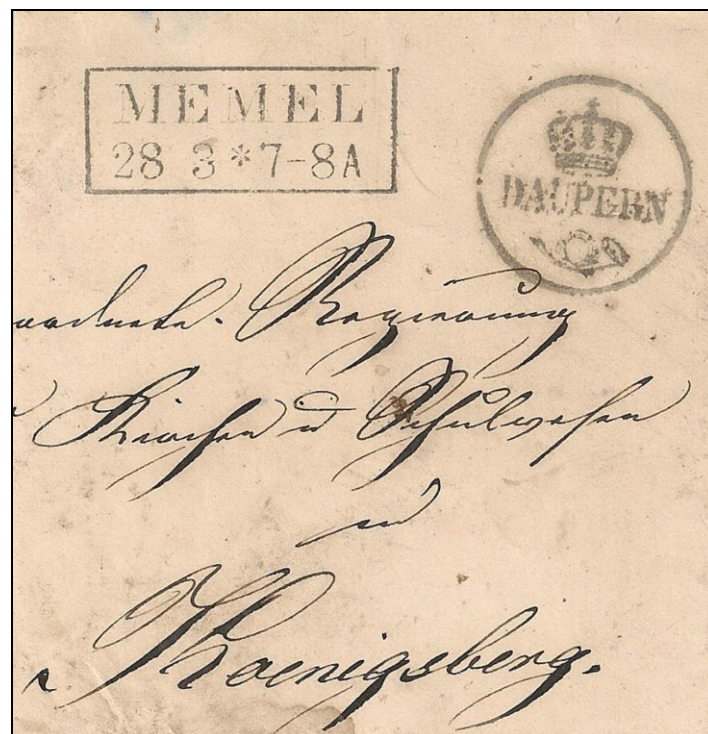 MEMEL
28 3 * 7-8 A
DAUPERN
Regierung
Kirchen u Schulwesen
in
Koenigsberg.